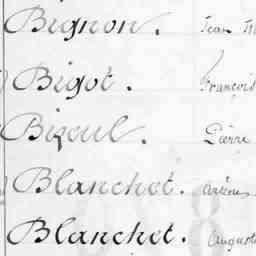 Bignon. Jean M
Bigot. François
Bizeul. Pierre
Blanchet. Arsène
Blanchet. Auguste